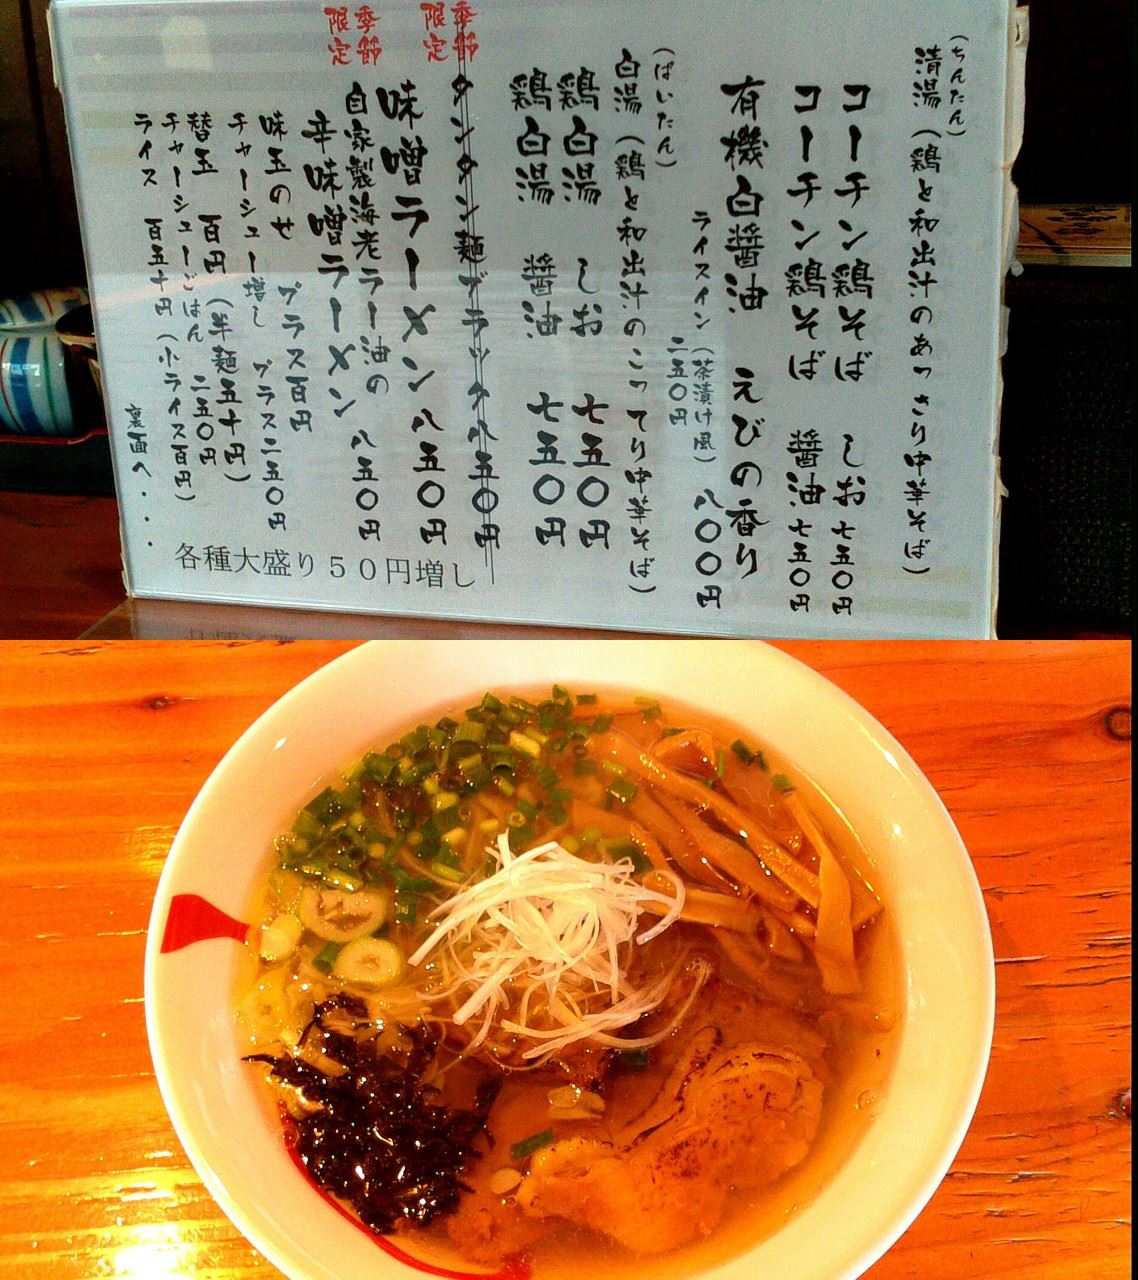 (ちんたん)
清湯(鶏と和出汁のあっさり中華そば)
コーチン鶏そば しお 七五〇円
コーチン鶏そば 醤油 七五〇円
有機白醤油 えびの香り 八〇〇円
ライスイン(茶漬け風)
二五〇円
(ぱいたん)
白湯(鶏と和出汁のこってり中華そば)
鶏白湯 しお 七五〇円
鶏白湯 醤油 七五〇円
季節限定
タンタン麺ブラック 八五〇円
味噌ラーメン 八五〇円
季節限定
自家製海老ラー油の 八五〇円
辛味噌ラーメン
味玉のせ プラス百円
チャーシュー増し プラス二五〇円
替玉 百円(半麺五十円)
チャーシューごはん 二五〇円
ライス 百五十円(小ライス百円)
裏面へ・・・
各種大盛り50円増し